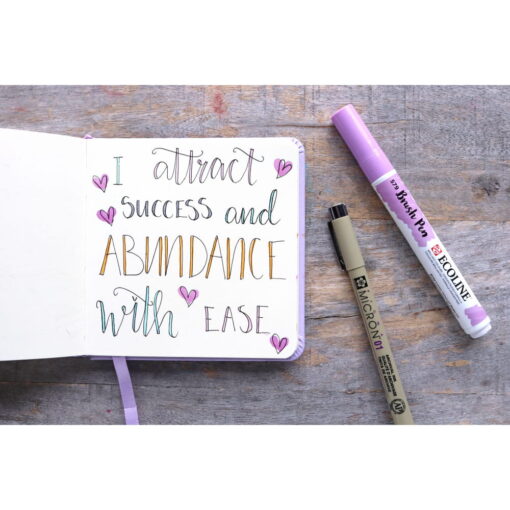 I attract
SUCCESS and
ABUNDANCE
with EASE
579 Brush Pen
ECOLINE
MICRON 01